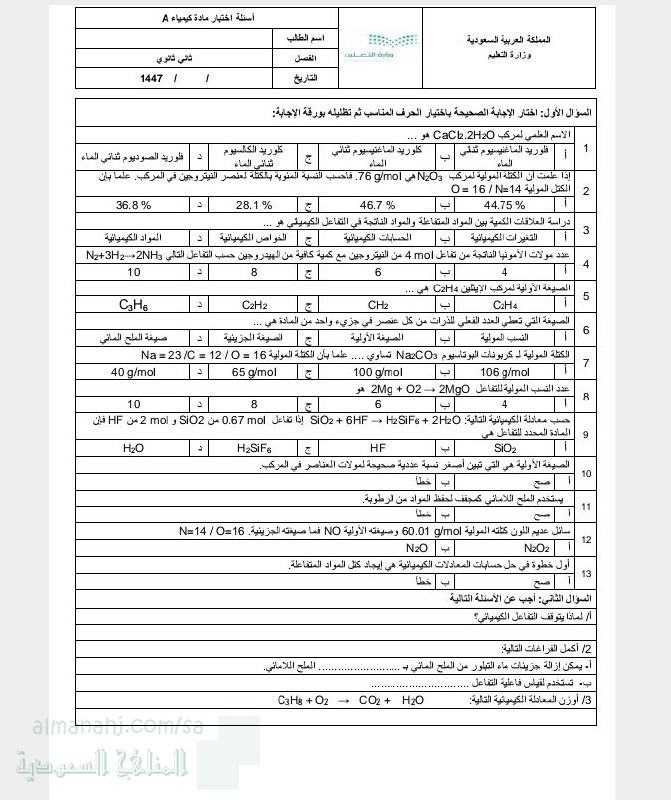 المملكة العربية السعودية
وزارة التعليم
وزارة التعليم
أسئلة اختبار مادة كيمياء A
اسم الطالب
الفصل ثاني ثانوي
التاريخ / / 1447
السؤال الأول: اختار الإجابة الصحيحة باختيار الحرف المناسب ثم تظليله بورقة الإجابة:
1 الاسم العلمي لمركب CaCl2.2H2O هو ...
أ فلوريد الماغنيسيوم ثنائي الماء ب كلوريد الماغنيسيوم ثنائي الماء ج كلوريد الكالسيوم ثنائي الماء د فلوريد الصوديوم ثنائي الماء
2 إذا علمت أن الكتلة المولية لمركب N2O3 هي 76 g/mol. فاحسب النسبة المئوية بالكتلة لعنصر النيتروجين في المركب. علما بإن
الكتل المولية O = 16 / N=14
أ 44.75 % ب 46.7 % ج 28.1 % د 36.8 %
3 دراسة العلاقات الكمية بين المواد المتفاعلة والمواد الناتجة في التفاعل الكيميائي هو ...
أ التغيرات الكيميائية ب الحسابات الكيميائية ج الخواص الكيميائية د المواد الكيميائية
4 عدد مولات الأمونيا الناتجة من تفاعل 4 mol من النيتروجين مع كمية كافية من الهيدروجين حسب التفاعل التالي N2+3H2→2NH3
أ 4 ب 6 ج 8 د 10
5 الصيغة الأولية لمركب الإيثلين C2H4 هي ...
أ C2H4 ب CH2 ج C2H2 د C3H6
6 الصيغة التي تعطي العدد الفعلي للذرات من كل عنصر في جزيء واحد من المادة هي ...
أ النسب المولية ب الصيغة الأولية ج الصيغة الجزيئية د صيغة الملح المائي
7 الكتلة المولية لـ كربونات البوتاسيوم Na2CO3 تساوي .... علما بأن الكتلة المولية Na = 23 /C = 12 / O = 16
أ 106 g/mol ب 100 g/mol ج 65 g/mol د 40 g/mol
8 عدد النسب المولية للتفاعل 2Mg + O2 → 2MgO هو
أ 4 ب 6 ج 8 د 10
9 حسب معادلة الكيميائية التالية: SiO2 + 6HF → H2SiF6 + 2H2O إذا تفاعل 0.67 mol من SiO2 و 2 mol من HF فإن
المادة المحدد للتفاعل هي
أ SiO2 ب HF ج H2SiF6 د H2O
10 الصيغة الأولية هي التي تبين أصغر نسبة عددية صحيحة لمولات العناصر في المركب.
أ صح ب خطأ
11 يستخدم الملح اللامائي كمجفف لحفظ المواد من الرطوبة.
أ صح ب خطأ
12 سائل عديم اللون كتلته المولية 60.01 g/mol وصيغته الأولية NO فما صيغته الجزيئية. N=14 / O=16
أ N2O2 ب N2O
13 أول خطوة في حل حسابات المعادلات الكيميائية هي إيجاد كتل المواد المتفاعلة.
أ صح ب خطأ
السؤال الثاني: أجب عن الأسئلة التالية
أ/ لماذا يتوقف التفاعل الكيميائي؟
2/ أكمل الفراغات التالية:
أ- يمكن إزالة جزيئات ماء التبلور من الملح المائي بـ ........................ الملح اللامائي.
ب- تستخدم لقياس فاعلية التفاعل ............................
3/ أوزن المعادلة الكيميائية التالية: C3H8 + O2 → CO2 + H2O
almanahj.com/sa
المناهج السعودية